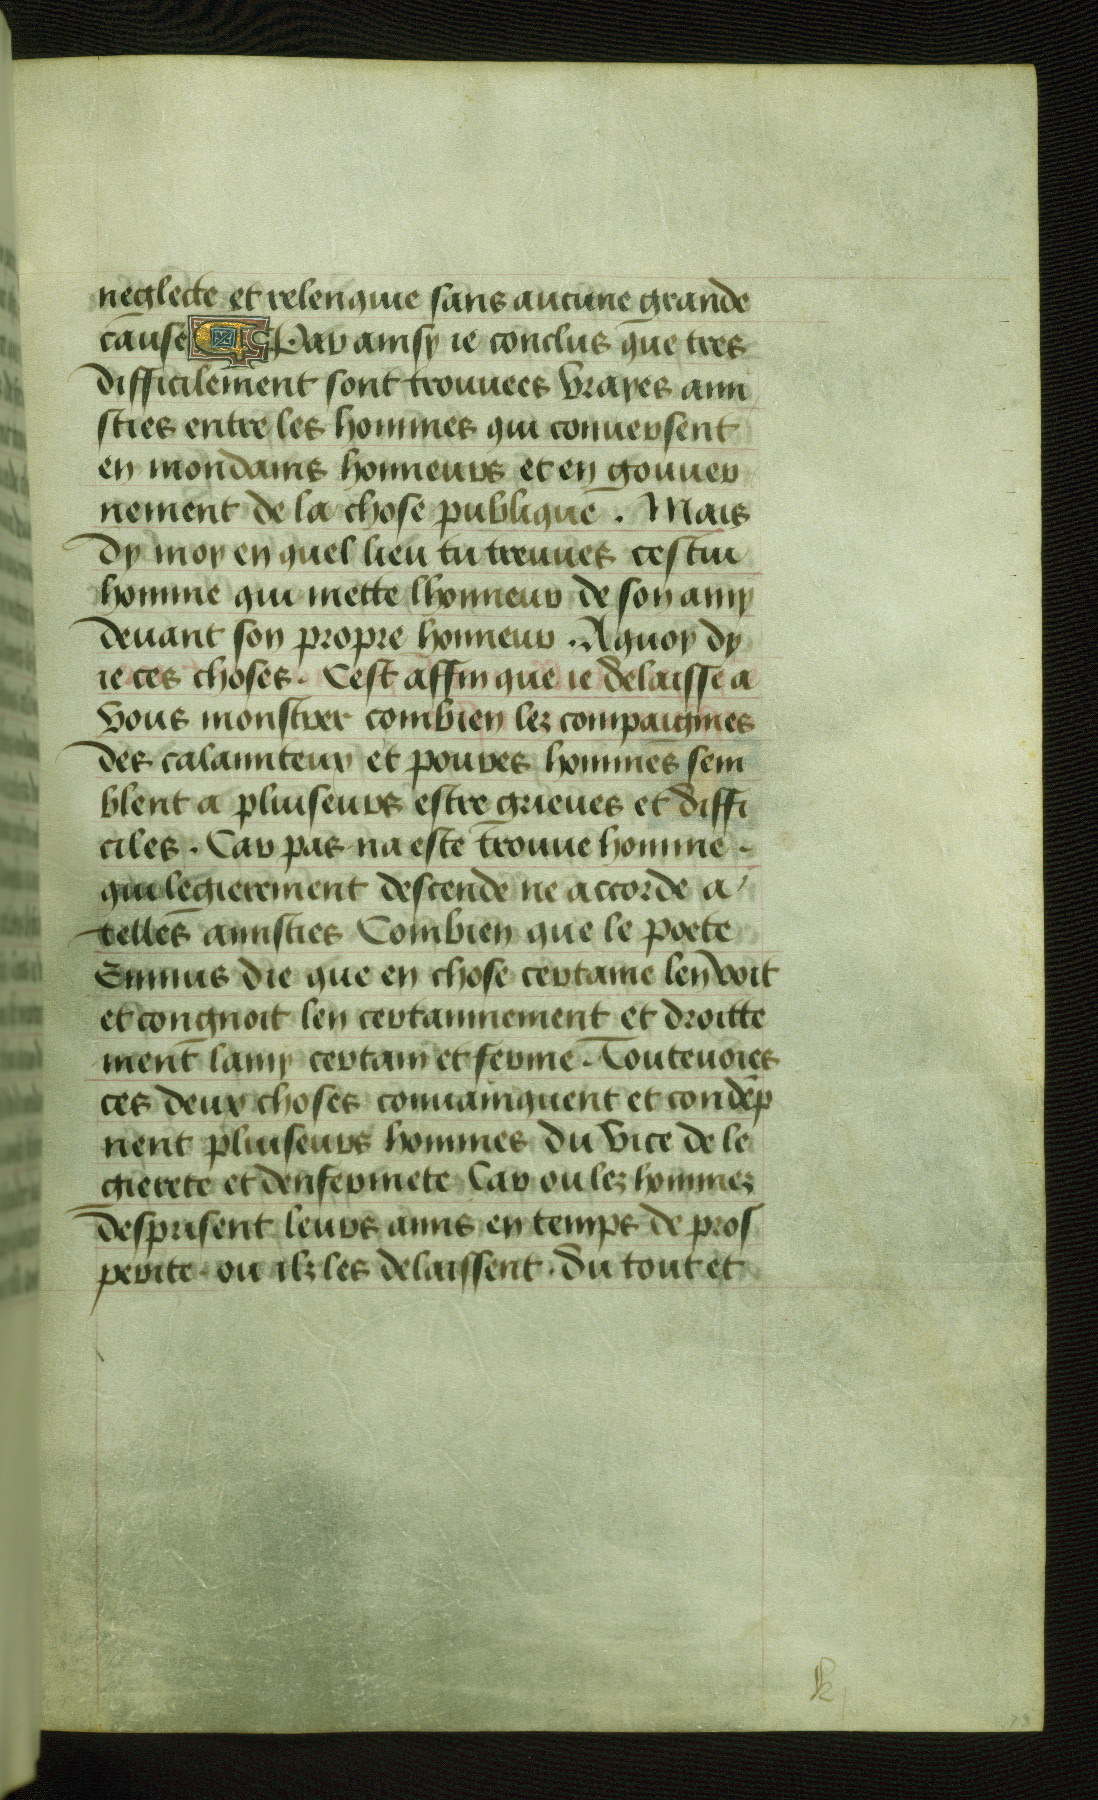 neglecte et relenquie sans aucune grande
cause Par ainsy ie conclus que tres
difficilement sont trouuees vrayes ami
sties entre les hommes qui conuersent
en mondains honneurs et en gouuer
nement de la chose publique . Mais
dy moy en quel lieu tu treuues cestui
homme qui mette lhonneur de son amy
deuant son propre honneur . A quoy dy
ie ces choses . Cest affin que ie delaisse a
vous monstrer combien lez compaignies
des calamiteux et poures hommes sem
blent a pluiseurs estre grieues et diffi
ciles . Car pas na este trouue homme -
qui legierement descende ne accorde a
telles amisties Combien que le poete
Ennius die que en chose certaine len voit
et congnoit len certainnement et droitte
ment lamy certain et ferme . Touteuoies
ces deux choses conuainquent et condēp
nent pluiseurs hommes du vice de le
gierete et denfermete Car ou lez hommez
desprisent leurs amis en temps de pros
perite . ou ilz les delaissent . du tout et